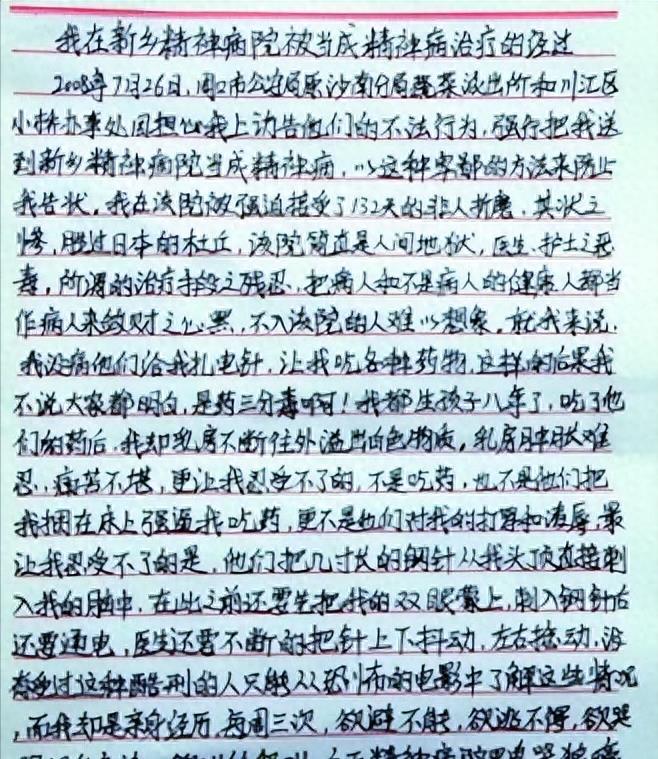 我在新乡精神病院被当成精神病治疗的经过
2008年7月26日,周口市公安局原沙南分局蔬菜派出所和川汇区
小桥办事处因担心我上访告他们的不法行为,强行把我送
到新乡精神病院当成精神病,以这种卑鄙的方法来阻止
我告状。我在该院被强迫接受了132天的非人折磨,其状之
惨,胜过日本的杜丘,该院简直是人间地狱,医生、护士之恶
毒,所谓的治疗手段之残忍,把病人和不是病人的健康人都当
作病人来敛财之心黑,不入该院的人难以想象。就我来说,
我没病他们给我扎电针,让我吃各种药物,这样的后果我
不说大家都明白,是药三分毒啊!我都生孩子八年了,吃了他
们的药后,我却乳房不断往外溢出白色物质,乳房胀难
忍,痛苦不堪,更让我忍受不了的,不是吃药,也不是他们把
我捆在床上强逼我吃药,更不是他们对我的打骂和凌辱,最
让我忍受不了的是,他们把几寸长的钢针从我头顶直接刺
入我的脑中,在此之前还要先把我的双眼蒙上,刺入钢针后
还要通电,医生还要不断的把针上下抖动,左右摇动,没
受过这种酷刑的人只能从恐怖的电影中了解这些情况
,而我却是亲身经历,每周三次,欲避不能,欲逃不得,欲哭
精神病院